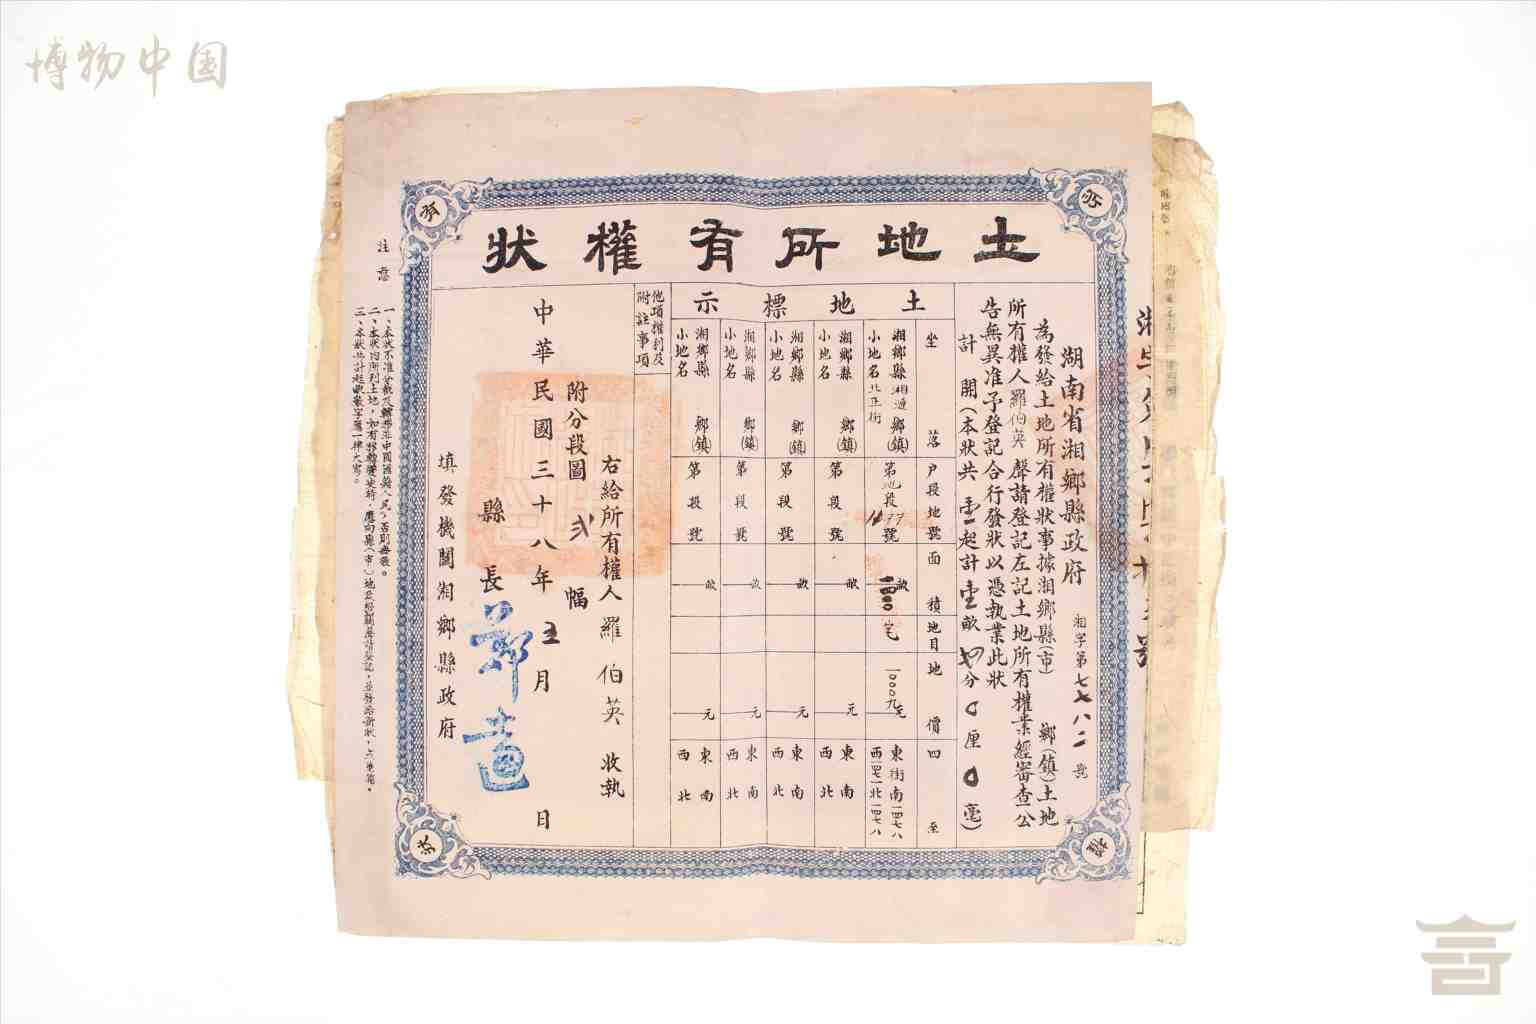 博物中国
土地所有權狀
湖南省湘鄉縣政府
湘字第七七八二號
為發給土地所有權狀事據湘鄉縣(市) 鄉(鎮)土地
所有權人羅伯英聲請登記左記土地所有權業經審查公
告無異准予登記合行發狀以憑執業此狀
計開(本狀共壹起計壹畝 分0厘0毫)
土地標示
坐落
戶段地號
面積
地目
地價
四至
湘鄉縣湘漣鄉(鎮)
小地名北正街
第地段1477號
畝
宅
一〇〇〇九元
東街南一四七八
西一四七一北一四七八
湘鄉縣 鄉(鎮)
小地名
第段號
畝
元
東南
西北
湘鄉縣 鄉(鎮)
小地名
第段號
畝
元
東南
西北
湘鄉縣 鄉(鎮)
小地名
第段號
畝
元
東南
西北
湘鄉縣 鄉(鎮)
小地名
第段號
畝
元
東南
西北
他項權利及
附註事項
右給所有權人羅伯英收執
附分段圖貳幅
中華民國三十八年五月 日
縣長
填發機關湘鄉縣政府
注意
一、本狀不准分裁及轉移非中國國籍人民，否則無效。
二、本狀內所列土地，如有移轉變更時，應向縣(市)地政機關聲請登記，並發給新狀，
三、本狀共計起畝數字應一律大寫。
所
有
權
狀